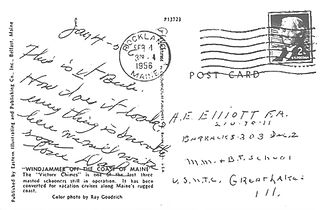 P13723
ROCKLAND
FEB 4
3 PM
1956
MAINE
2¢
POST CARD
This is it Dear.
How does it look
everything is
here
soon
Love
A.E. Elliott F.A.
Barracks 303
MM. + B.T. School
U.S.N.T.C. Great Lakes
Ill.
"WINDJAMMER OFF THE COAST OF MAINE"
The "Victory Chimes" is one of the last three
masted schooners still in operation. It has
been converted for vacation cruises along Maine's rugged
coast.
Color photo by Ray Goodrich
Published by Eastern Illustrating and Publishing Co., Inc., Belfast, Maine